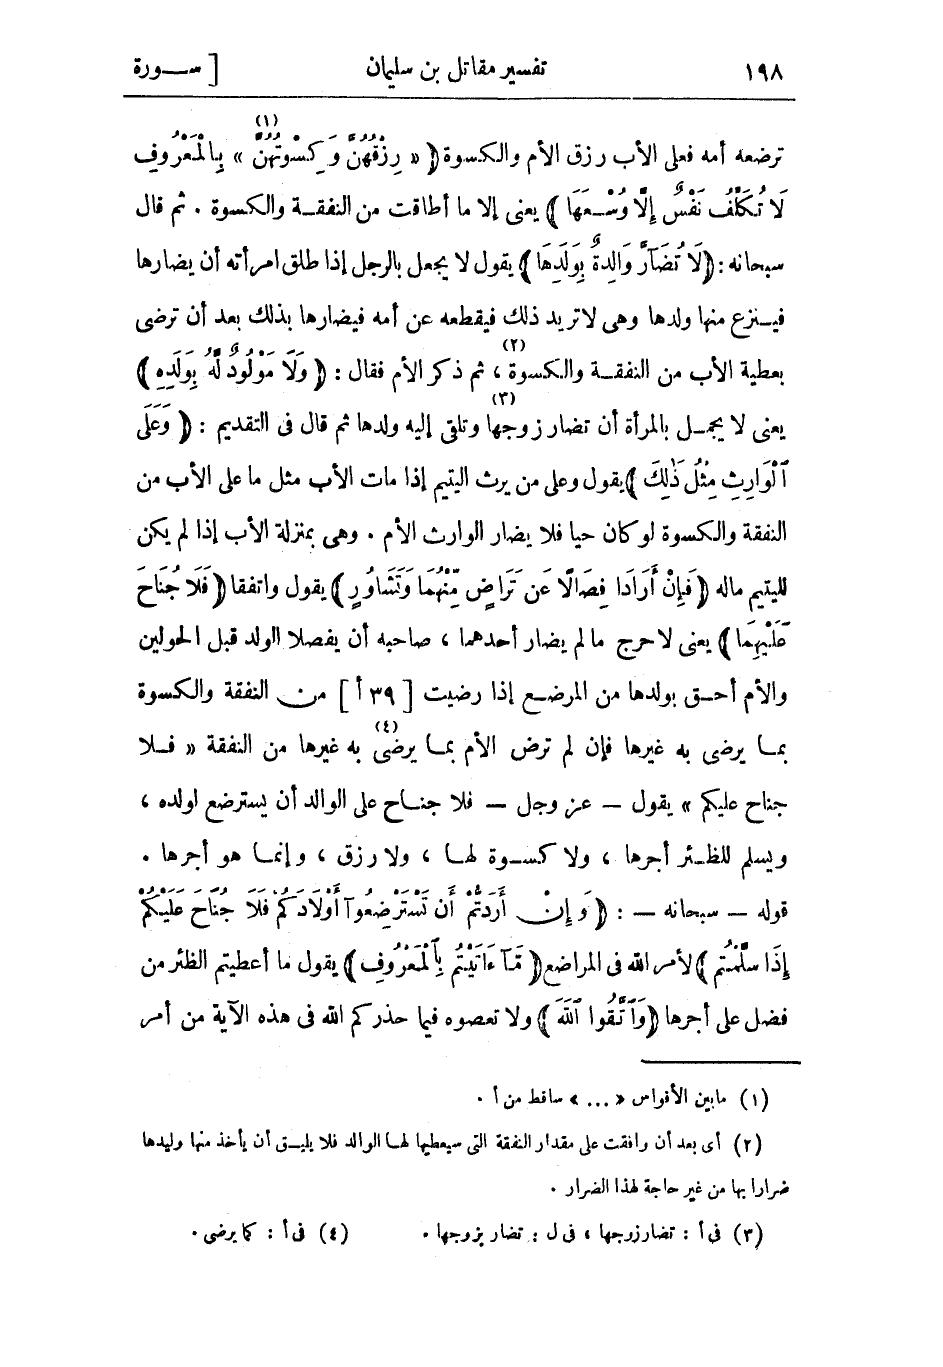 ١٩٨ تفسير مقاتل بن سليمان [ ســورة
(١)
ترضعه أمه فعلى الأب رزق الأم والكسوة ( « رِزْقُهُنَّ وَكِسْوَتُهُنَّ » بِالْمَعْرُوفِ
لَا تُكَلَّفُ نَفْسٌ إِلَّا وُسْعَهَا ) يعنى إلا ما أطاقت من النفقـة والكسوة . ثم قال
سبحانه : ( لَا تُضَآرَّ وَالِدةٌ بِوَلَدِهَا ) يقول لا يجعل بالرجل إذا طلق امرأته أن يضارها
فيـنزع منها ولدها وهى لا تريد ذلك فيقطعه عن أمه فيضارها بذلك بعد أن ترضى
بعطية الأب من النفقـة والكسوة (٢) ، ثم ذكر الأم فقال : ( وَلَا مَوْلُودٌ لَّهُ بِوَلَدِهِ )
يعنى لا يجمـل بالمرأة أن تضار زوجها (٣) وتلقى إليه ولدها ثم قال فى التقديم : ( وَعَلَى
ٱلْوَارِثِ مِثْلُ ذَٰلِكَ ) يقول وعلى من يرث اليتيم إذا مات الأب مثل ما على الأب من
النفقة والكسوة لو كان حيا فلا يضار الوارث الأم . وهى بمنزلة الأب إذا لم يكن
لليتيم ماله ( فَإِنْ أَرَادَا فِصَالًا عَن تَرَاضٍ مِّنْهُمَا وَتَشَاوُرٍ ) يقول واتفقا ( فَلَا جُنَاحَ
عَلَيْهِمَا ) يعنى لا حرج مالم يضار أحدهما ، صاحبه أن يفصلا الولد قبل الحولين
والأم أحـق بولدها من المرضـع إذا رضيت [ ٣٩ أ ] من النفقة والكسوة
بمـا يرضى به غيرها فإن لم ترض الأم بمـا يرضى (٤) به غيرها من النفقة « فـلا
جناح عليكم » يقول — عز وجل — فلا جنـاح على الوالد أن يسترضع لولده ،
ويسلم للظـئر أجرها ، ولا كسـوة لهـا ، ولا رزق ، وإنمـا هو أجرها .
قوله — سبحانه — : ( وَإِنْ أَرَدتُّمْ أَن تَسْتَرْضِعُوٓا أَوْلَادَكُمْ فَلَا جُنَاحَ عَلَيْكُمْ
إِذَا سَلَّمْتُم ) لأمر الله فى المراضع ( مَّآ ءَاتَيْتُم بِٱلْمَعْرُوفِ ) يقول ما أعطيتم الظئر من
فضل على أجرها ( وَٱتَّقُوا ٱللَّهَ ) ولا تعصوه فيما حذركم الله فى هذه الآية من أمر
(١) مابين الأقواس « ... » ساقط من أ .
(٢) أى بعد أن وافقت على مقدار النفقة التى سيعطيها لهـا الوالد فلا يليـق أن يأخذ منها وليدها
ضرارا بها من غير حاجة لهذا الضرار .
(٣) فى أ : تضار زوجها ، فى ل : تضار بزوجها . (٤) فى أ : كما يرضى .